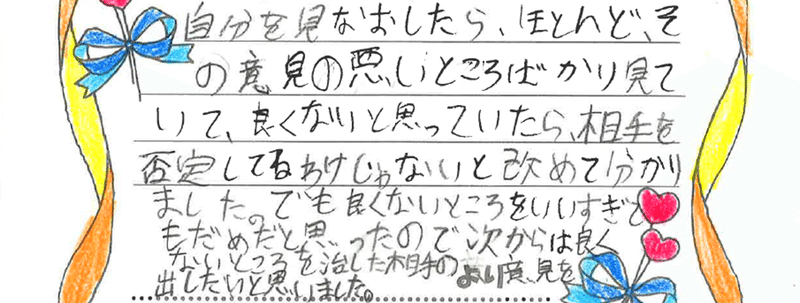 自分を見なおしたら、ほとんど、そ
の意見の悪いところばかり見て
いて、良くないと思っていたら、相手を
否定してるわけじゃないと改めて分かり
ました。でも良くないところをいいすぎて
もだめだと思ったので次からは良く
ないところを治した相手のよい意見を
出したいと思いました。